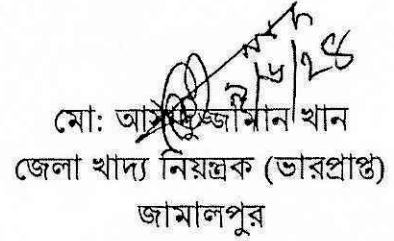 মো: আসাদুজ্জামান খান
জেলা খাদ্য নিয়ন্ত্রক (ভারপ্রাপ্ত)
জামালপুর